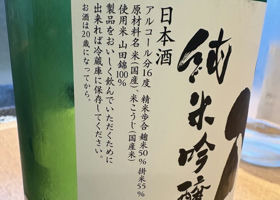 純米吟醸
日本酒
アルコール分16度 精米歩合 麹米50% 掛米55%
原材料名 米(国産)、米こうじ(国産米)
使用米 山田錦100%
製品をおいしく飲んでいただくために
出来れば冷蔵庫に保存してください。
お酒は20歳になってから。